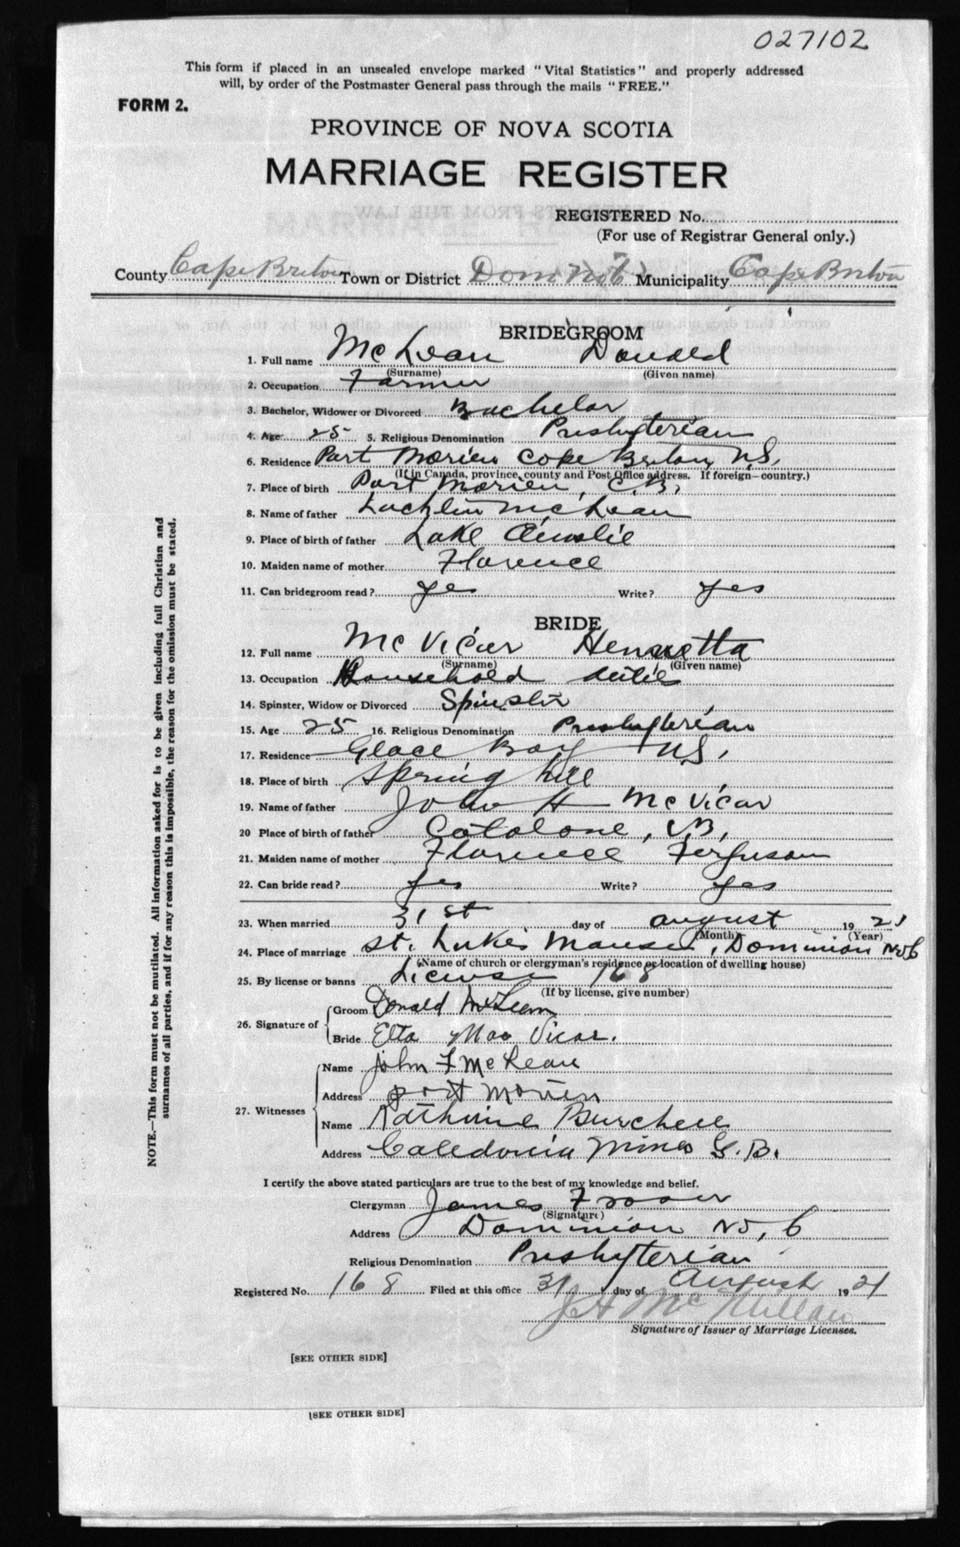 027102
This form if placed in an unsealed envelope marked "Vital Statistics" and properly addressed
will, by order of the Postmaster General pass through the mails "FREE."
FORM 2.
PROVINCE OF NOVA SCOTIA
MARRIAGE REGISTER
REGISTERED No.
(For use of Registrar General only.)
County Cape Breton Town or District Dom No 6 Municipality Cape Breton
BRIDEGROOM
1. Full name McLean Donald
(Surname) (Given name)
2. Occupation Farmer
3. Bachelor, Widower or Divorced Bachelor
4. Age 25 5. Religious Denomination Presbyterian
6. Residence Port Morien Cape Breton, N.S.
(If in Canada, province, county and Post Office address. If foreign—country.)
7. Place of birth Port Morien, C.B.
8. Name of father Lachlin McLean
9. Place of birth of father Lake Ainslie
10. Maiden name of mother Florence
11. Can bridegroom read? yes Write? yes
BRIDE
12. Full name McVicar Henrietta
(Surname) (Given name)
13. Occupation Household duties
14. Spinster, Widow or Divorced Spinster
15. Age 25 16. Religious Denomination Presbyterian
17. Residence Glace Bay N.S.
18. Place of birth Spring hill
19. Name of father John H McVicar
20 Place of birth of father Catalone, C.B.
21. Maiden name of mother Florence Ferguson
22. Can bride read? yes Write? yes
23. When married 31st day of August 1921
(Month) (Year)
24. Place of marriage St. Luke's Manse, Dominion No 6
(Name of church or clergyman's residence or location of dwelling house)
25. By license or banns License 168
(If by license, give number)
26. Signature of
Groom Donald McLean
Bride Etta MacVicar.
27. Witnesses
Name John F McLean
Address port Morien
Name Katherine Burchell
Address Caledonia Mines G.B.
I certify the above stated particulars are true to the best of my knowledge and belief.
Clergyman James Fraser
(Signature)
Address Dominion No, 6
Religious Denomination Presbyterian
Registered No. 168 Filed at this office 31 day of August 1921
J A McMillan
Signature of Issuer of Marriage Licenses.
[SEE OTHER SIDE]
[SEE OTHER SIDE]
NOTE.—This form must not be mutilated. All information asked for is to be given including full Christian and
surnames of all parties, and if for any reason this is impossible, the reason for the omission must be stated.